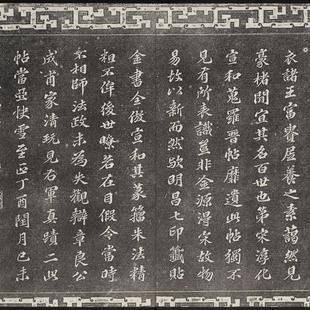 衣諸王富貴居養之素藹然見
豪楮間宜其名百世也第宋淳化
宣和蒐羅晉帖靡遺此帖獨不
見有所表識蓋非金源得宋故物
易故以新而然歟明昌七印籤貼
金書全倣宣和其篆籀朱法精
粗不侔後世晦名在目假令當時
不相師法政未為失觀辯章良公
成甫家清玩見右軍真蹟二此
帖當亞快雪至正丁酉閏月己未